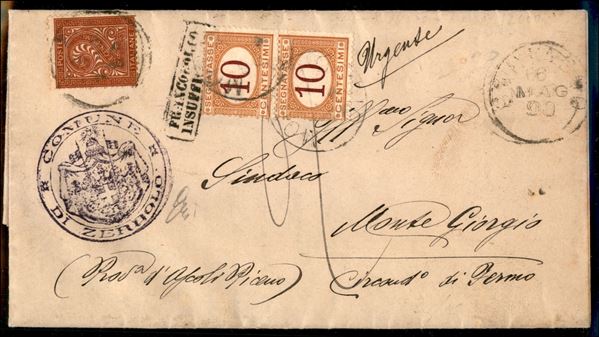 POSTE ITALIANE
FRANCOBOLLO
INSUFFIC
SEGNATASSE
10
CENTESIMI
SEGNATASSE
10
CENTESIMI
Urgente
6
MAG
90
COMUNE
DI ZERBOLO
Ill.mo Signor
Sindaco
Monte Giorgio
(Prov.a d'Ascoli Piceno) Circond.o di Fermo